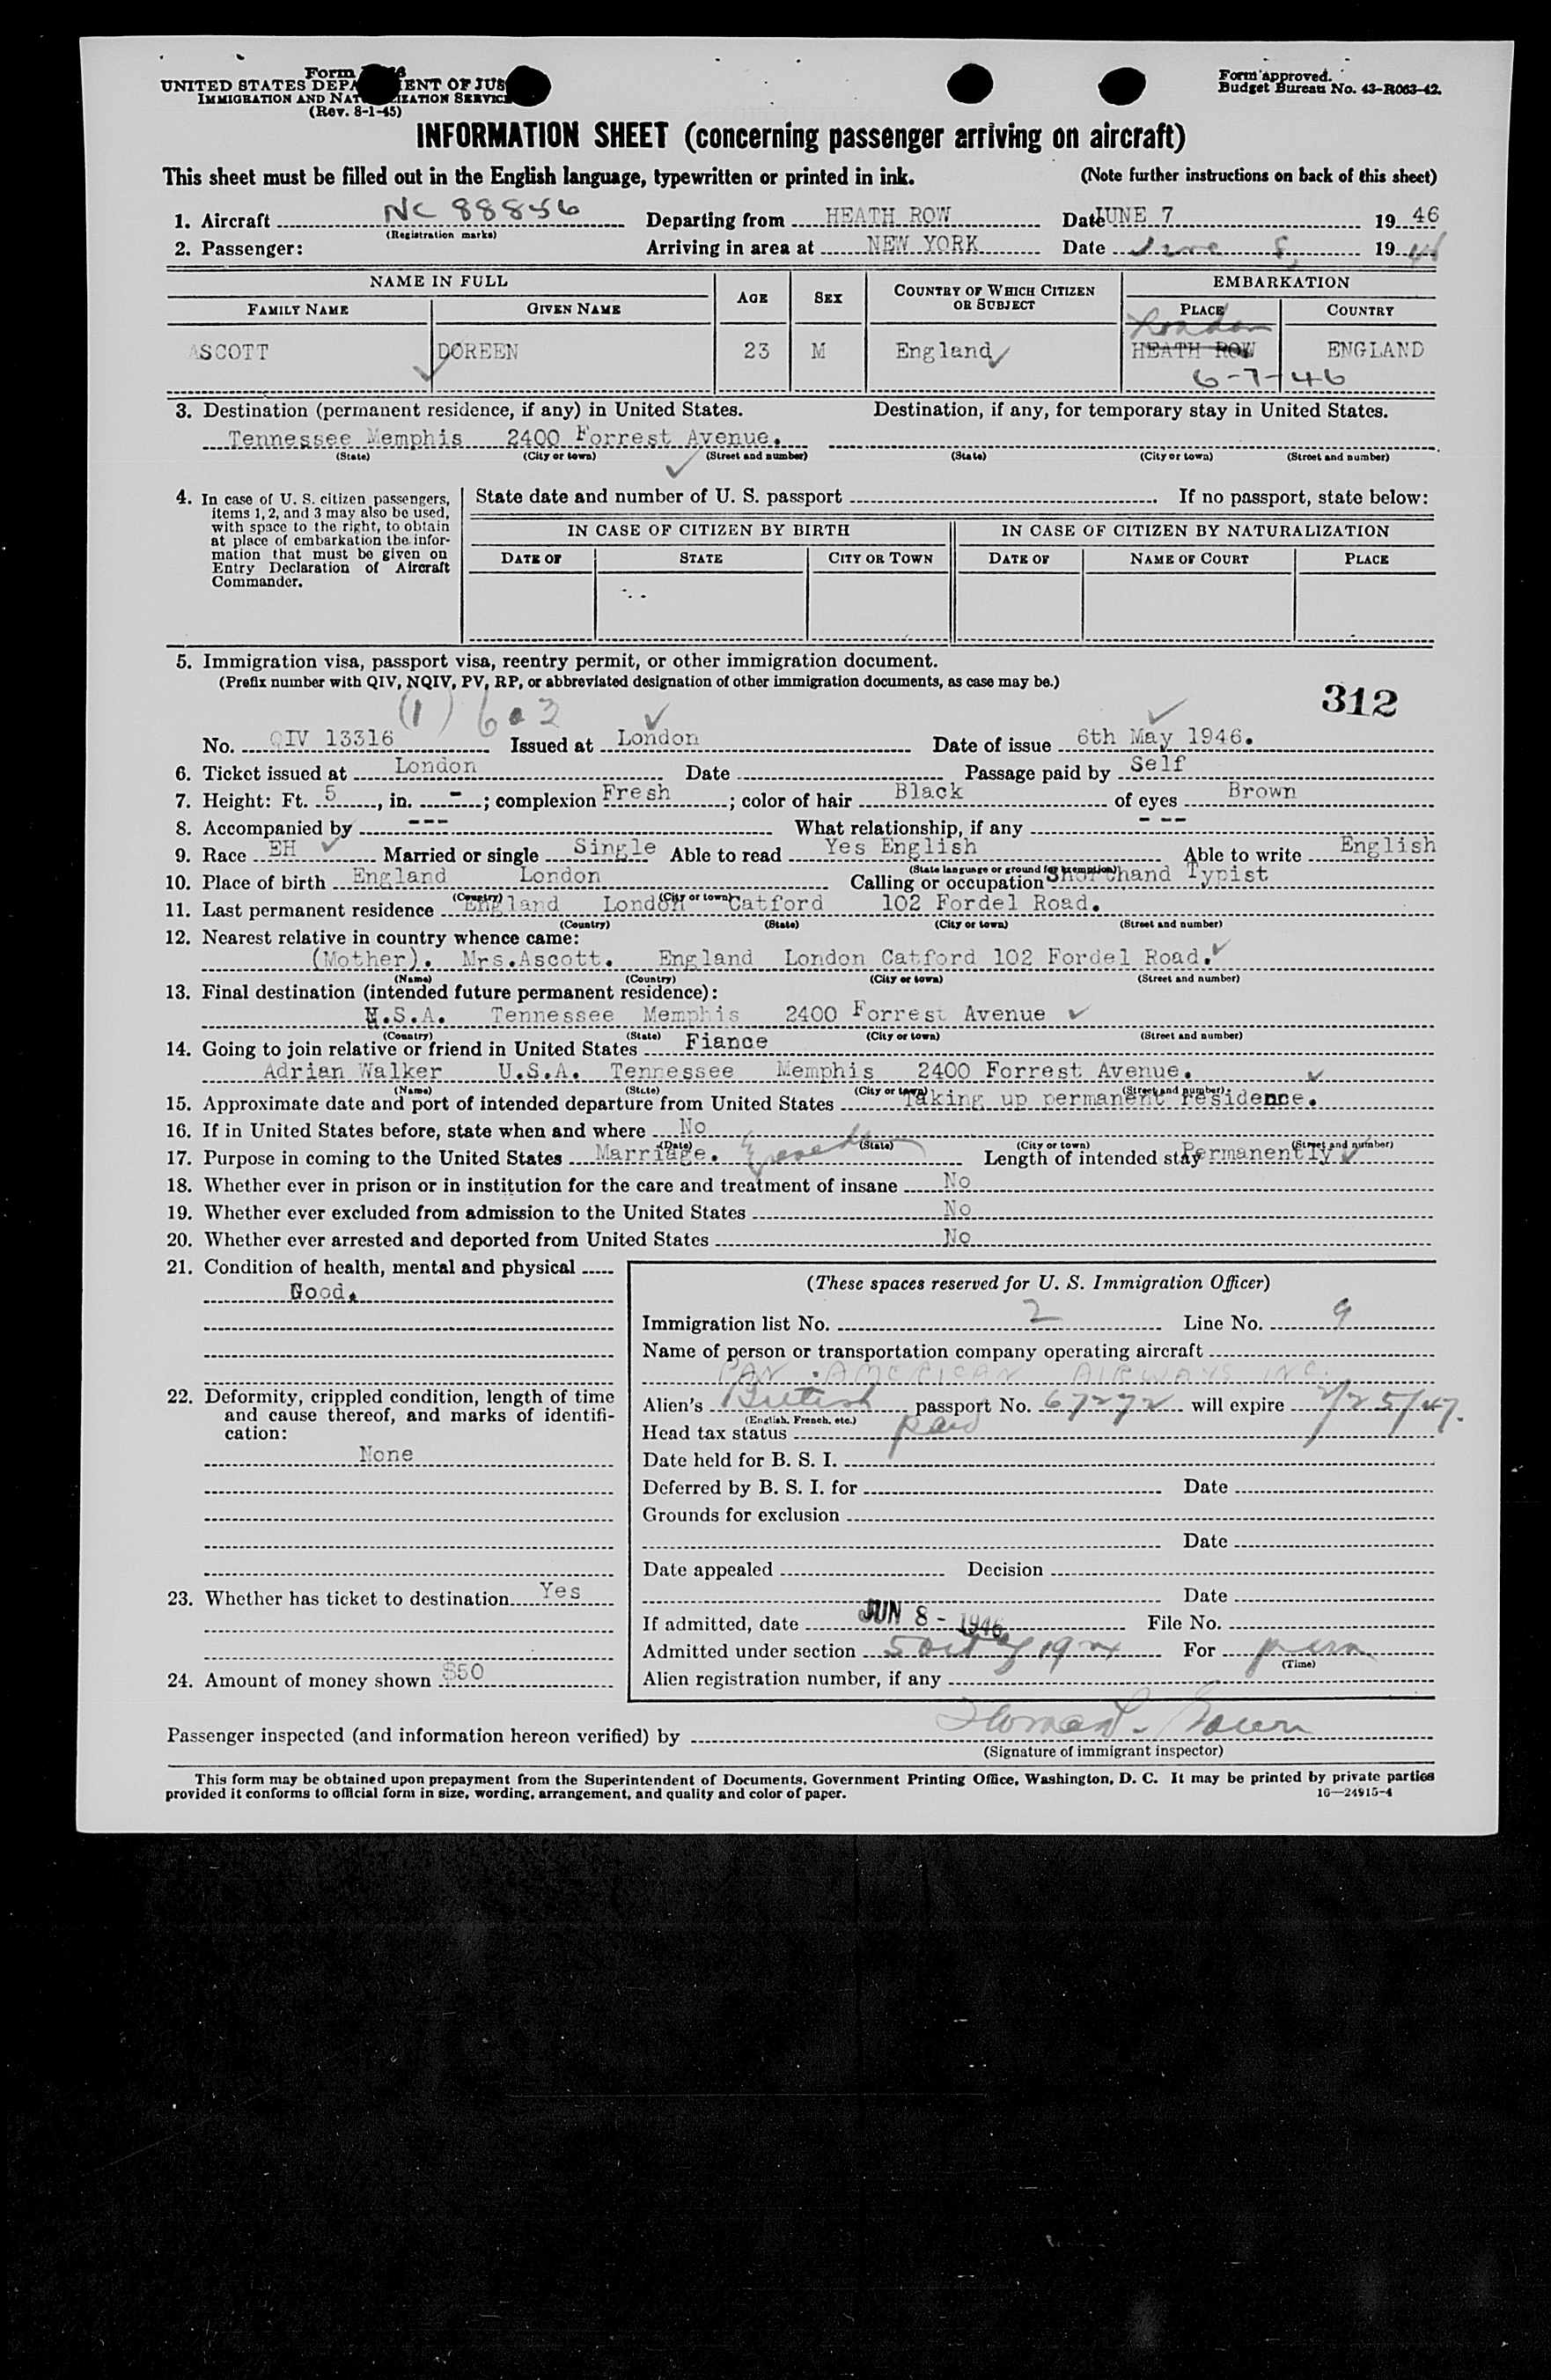 Form
UNITED STATES DEPA ENT OF JUS
IMMIGRATION AND NAT IZATION SERVICE
(Rev. 8-1-45)
Form approved.
Budget Bureau No. 43-R063-42.
INFORMATION SHEET (concerning passenger arriving on aircraft)
This sheet must be filled out in the English language, typewritten or printed in ink. (Note further instructions on back of this sheet)
1. Aircraft NC 88856 Departing from HEATH ROW Date JUNE 7 19 46
(Registration marks)
2. Passenger: Arriving in area at NEW YORK Date June 8, 19 46
NAME IN FULL AGE SEX COUNTRY OF WHICH CITIZEN OR SUBJECT EMBARKATION
FAMILY NAME GIVEN NAME PLACE COUNTRY
London
ASCOTT DOREEN 23 M England HEATH ROW ENGLAND
6-7-46
3. Destination (permanent residence, if any) in United States. Destination, if any, for temporary stay in United States.
Tennessee Memphis 2400 Forrest Avenue.
(State) (City or town) (Street and number) (State) (City or town) (Street and number)
4. In case of U. S. citizen passengers, items 1, 2, and 3 may also be used, with space to the right, to obtain at place of embarkation the information that must be given on Entry Declaration of Aircraft Commander.
State date and number of U. S. passport If no passport, state below:
IN CASE OF CITIZEN BY BIRTH IN CASE OF CITIZEN BY NATURALIZATION
DATE OF STATE CITY OR TOWN DATE OF NAME OF COURT PLACE
5. Immigration visa, passport visa, reentry permit, or other immigration document.
(Prefix number with QIV, NQIV, PV, RP, or abbreviated designation of other immigration documents, as case may be.)
312
(1) 6
No. QIV 13316 Issued at London Date of issue 6th May 1946.
6. Ticket issued at London Date Passage paid by Self
7. Height: Ft. 5, in. -; complexion Fresh; color of hair Black of eyes Brown
8. Accompanied by --- What relationship, if any ---
9. Race EH Married or single Single Able to read Yes English Able to write English
(State language or ground for exemption)
10. Place of birth England London Calling or occupation Shorthand Typist
(Country) (City or town)
11. Last permanent residence England London Catford 102 Fordel Road.
(Country) (State) (City or town) (Street and number)
12. Nearest relative in country whence came:
(Mother). Mrs.Ascott. England London Catford 102 Fordel Road.
(Name) (Country) (City or town) (Street and number)
13. Final destination (intended future permanent residence):
U.S.A. Tennessee Memphis 2400 Forrest Avenue
(Country) (State) (City or town) (Street and number)
14. Going to join relative or friend in United States Fiance
Adrian Walker U.S.A. Tennessee Memphis 2400 Forrest Avenue.
(Name) (State) (City or town) (Street and number)
15. Approximate date and port of intended departure from United States Taking up permanent residence.
16. If in United States before, state when and where No
(Date) (State) (City or town) (Street and number)
17. Purpose in coming to the United States Marriage. Length of intended stay Permanently
18. Whether ever in prison or in institution for the care and treatment of insane No
19. Whether ever excluded from admission to the United States No
20. Whether ever arrested and deported from United States No
21. Condition of health, mental and physical
Good.
22. Deformity, crippled condition, length of time and cause thereof, and marks of identification:
None
23. Whether has ticket to destination Yes
24. Amount of money shown $50
(These spaces reserved for U. S. Immigration Officer)
Immigration list No. 2 Line No. 9
Name of person or transportation company operating aircraft
PAN AMERICAN AIRWAYS INC.
Alien's British passport No. 67272 will expire 2/25/47.
(English, French, etc.)
Head tax status paid
Date held for B. S. I.
Deferred by B. S. I. for Date
Grounds for exclusion
Date
Date appealed Decision
Date
If admitted, date JUN 8 - 1946 File No.
Admitted under section 5 act of 1924 For perm
(Time)
Alien registration number, if any
Passenger inspected (and information hereon verified) by
(Signature of immigrant inspector)
This form may be obtained upon prepayment from the Superintendent of Documents, Government Printing Office, Washington, D. C. It may be printed by private parties
provided it conforms to official form in size, wording, arrangement, and quality and color of paper. 16—24915-4